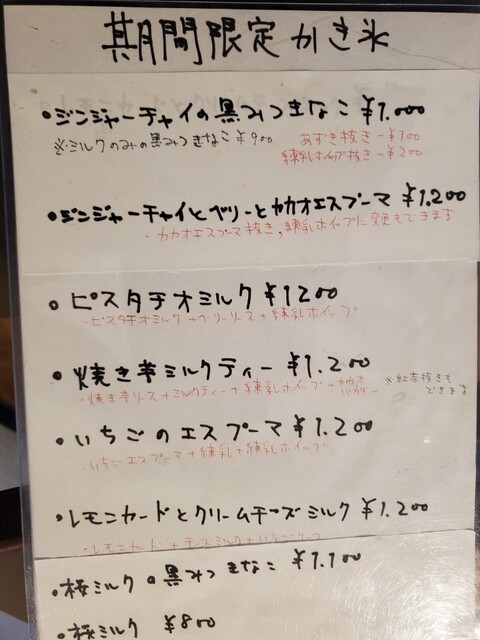 期間限定かき氷
・ジンジャーチャイの黒みつきなこ ¥1.000
※ミルクのみの黒みつきなこ¥900
あずき抜き -¥100
練乳ホイップ抜き -¥200
・ジンジャーチャイとベリーとカカオエスプーマ ¥1.200
・カカオエスプーマ抜き、練乳ホイップに変更もできます
・ピスタチオミルク ¥1200
・ピスタチオミルク+ベリーソース+練乳ホイップ
・焼き芋ミルクティー ¥1.200
・焼き芋ソース+ミルクティー+練乳ホイップ+
※紅茶抜きも
できます
・いちごのエスプーマ ¥1.200
・いちごエスプーマ+練乳+練乳ホイップ
・レモンカードとクリームチーズミルク ¥1.200
・レモンカード+チーズミルク+いちごソース
・桜ミルクの黒みつきなこ ¥1.100
・桜ミルク ¥800